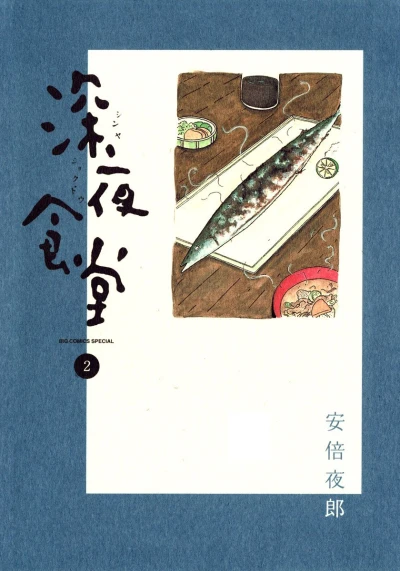 深夜食堂
シンヤ
ショクドウ
BIG COMICS SPECIAL
2
安倍夜郎